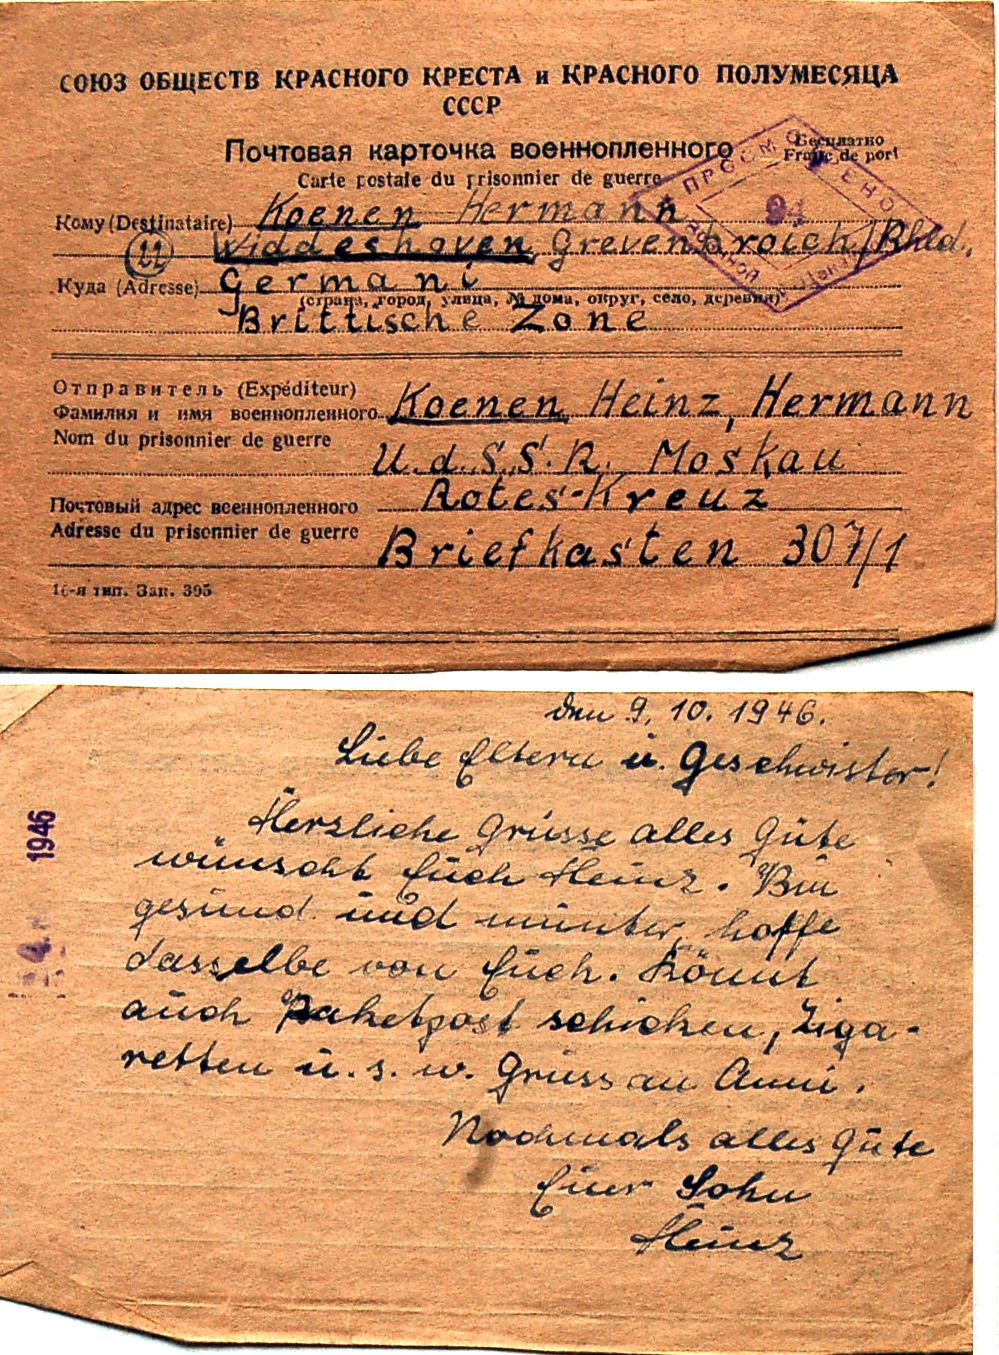 СОЮЗ ОБЩЕСТВ КРАСНОГО КРЕСТА и КРАСНОГО ПОЛУМЕСЯЦА
СССР
Почтовая карточка военнопленного
Бесплатно
Franc de port
Carte postale du prisonnier de guerre
Кому (Destinataire) Koenen Hermann
Widdeshoven, Grevenbroich/Rhld.
Куда (Adresse) Germani
(страна, город, улица, № дома, округ, село, деревня)
Brittische Zone
ПРОСМОТРЕНО
94
Отправитель (Expéditeur)
Фамилия и имя военнопленного Koenen Heinz, Hermann
Nom du prisonnier de guerre
U.d.S.S.R. Moskau
Почтовый адрес военнопленного Rotes-Kreuz
Adresse du prisonnier de guerre Briefkasten 307/1
16-я тип. Зак. 395
den 9. 10. 1946.
Liebe Eltern u. Geschwister!
Herzliche Grüsse alles Gute
wünscht Euch Heinz. Bin
gesund und munter, hoffe
dasselbe von Euch. Könnt
auch Paketpost schicken, Ziga-
retten u. s. w. Gruss an Anni.
Nochmals alles Gute
Euer Sohn
Heinz
1946